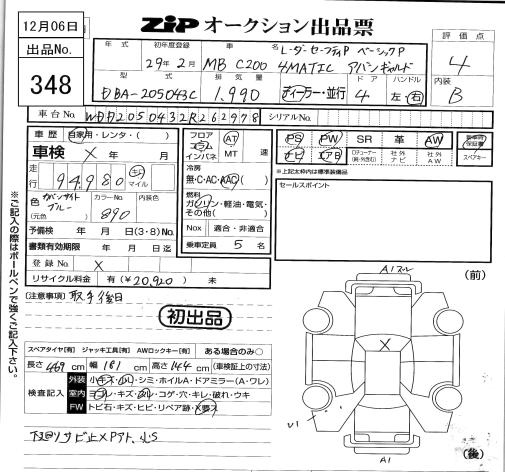 12月06日
ZIP オークション出品票
出品No.
348
年式 初年度登録 車名
29年2月 MB C200 4MATIC アバンギャルド
レーダーセーフティP ベーシックP
評価点
4
内装
B
型式 排気量 ドア ハンドル
DBA-205043C 1,990 ディーラー・並行 4 左・右
車台No. WDD2050432R262978 シリアルNo.
車歴 自家用・レンタ・( )
車検 × 年 月
走行 94,980 km マイル
色 カバンサイトブルー
(元色)
カラーNo. 890
内装色
予備検 年 月 日(3・8)No.
書類有効期限 年 月 日迄
登録No. ×
リサイクル料金 有(¥20,920) 未
フロア コラム インパネ
AT
MT 速
冷房
無・C・AC・AAC
燃料
ガソリン・軽油・電気・その他( )
Nox 適合・非適合
乗車定員 5 名
PS PW SR 革 AW
ナビ エアB 社外ナビ 社外AW
スペアキー
※上記太枠内は標準装備品
セールスポイント
[注意事項] 取手後日
初出品
※ご記入の際はボールペンで強くご記入下さい。
スペアタイヤ[有] ジャッキ工具[有] AWロックキー[有] ある場合のみ○
長さ 469 cm 幅 181 cm 高さ 144 cm (車検証上の寸法)
検査記入
外装 小キズ・凹・シミ・ホイルA・ドアミラー(A・ワレ)
室内 ヨゴレ・キズ・スレ・コゲ・穴・キレ・破れ・ウキ
FW トビ石・キズ・ヒビ・リペア跡・X要ス
(前)
A1
×
A1
(後)